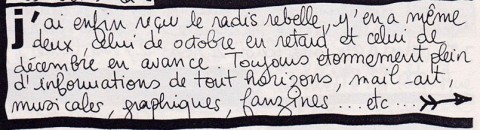 j'ai enfin reçu le radis rebelle, y'en a même
deux, celui de octobre en retard et celui de
décembre en avance. Toujours etonnemment plein
d'informations de tout horizons, mail-art,
musicales, graphiques, fanzines .... etc ...